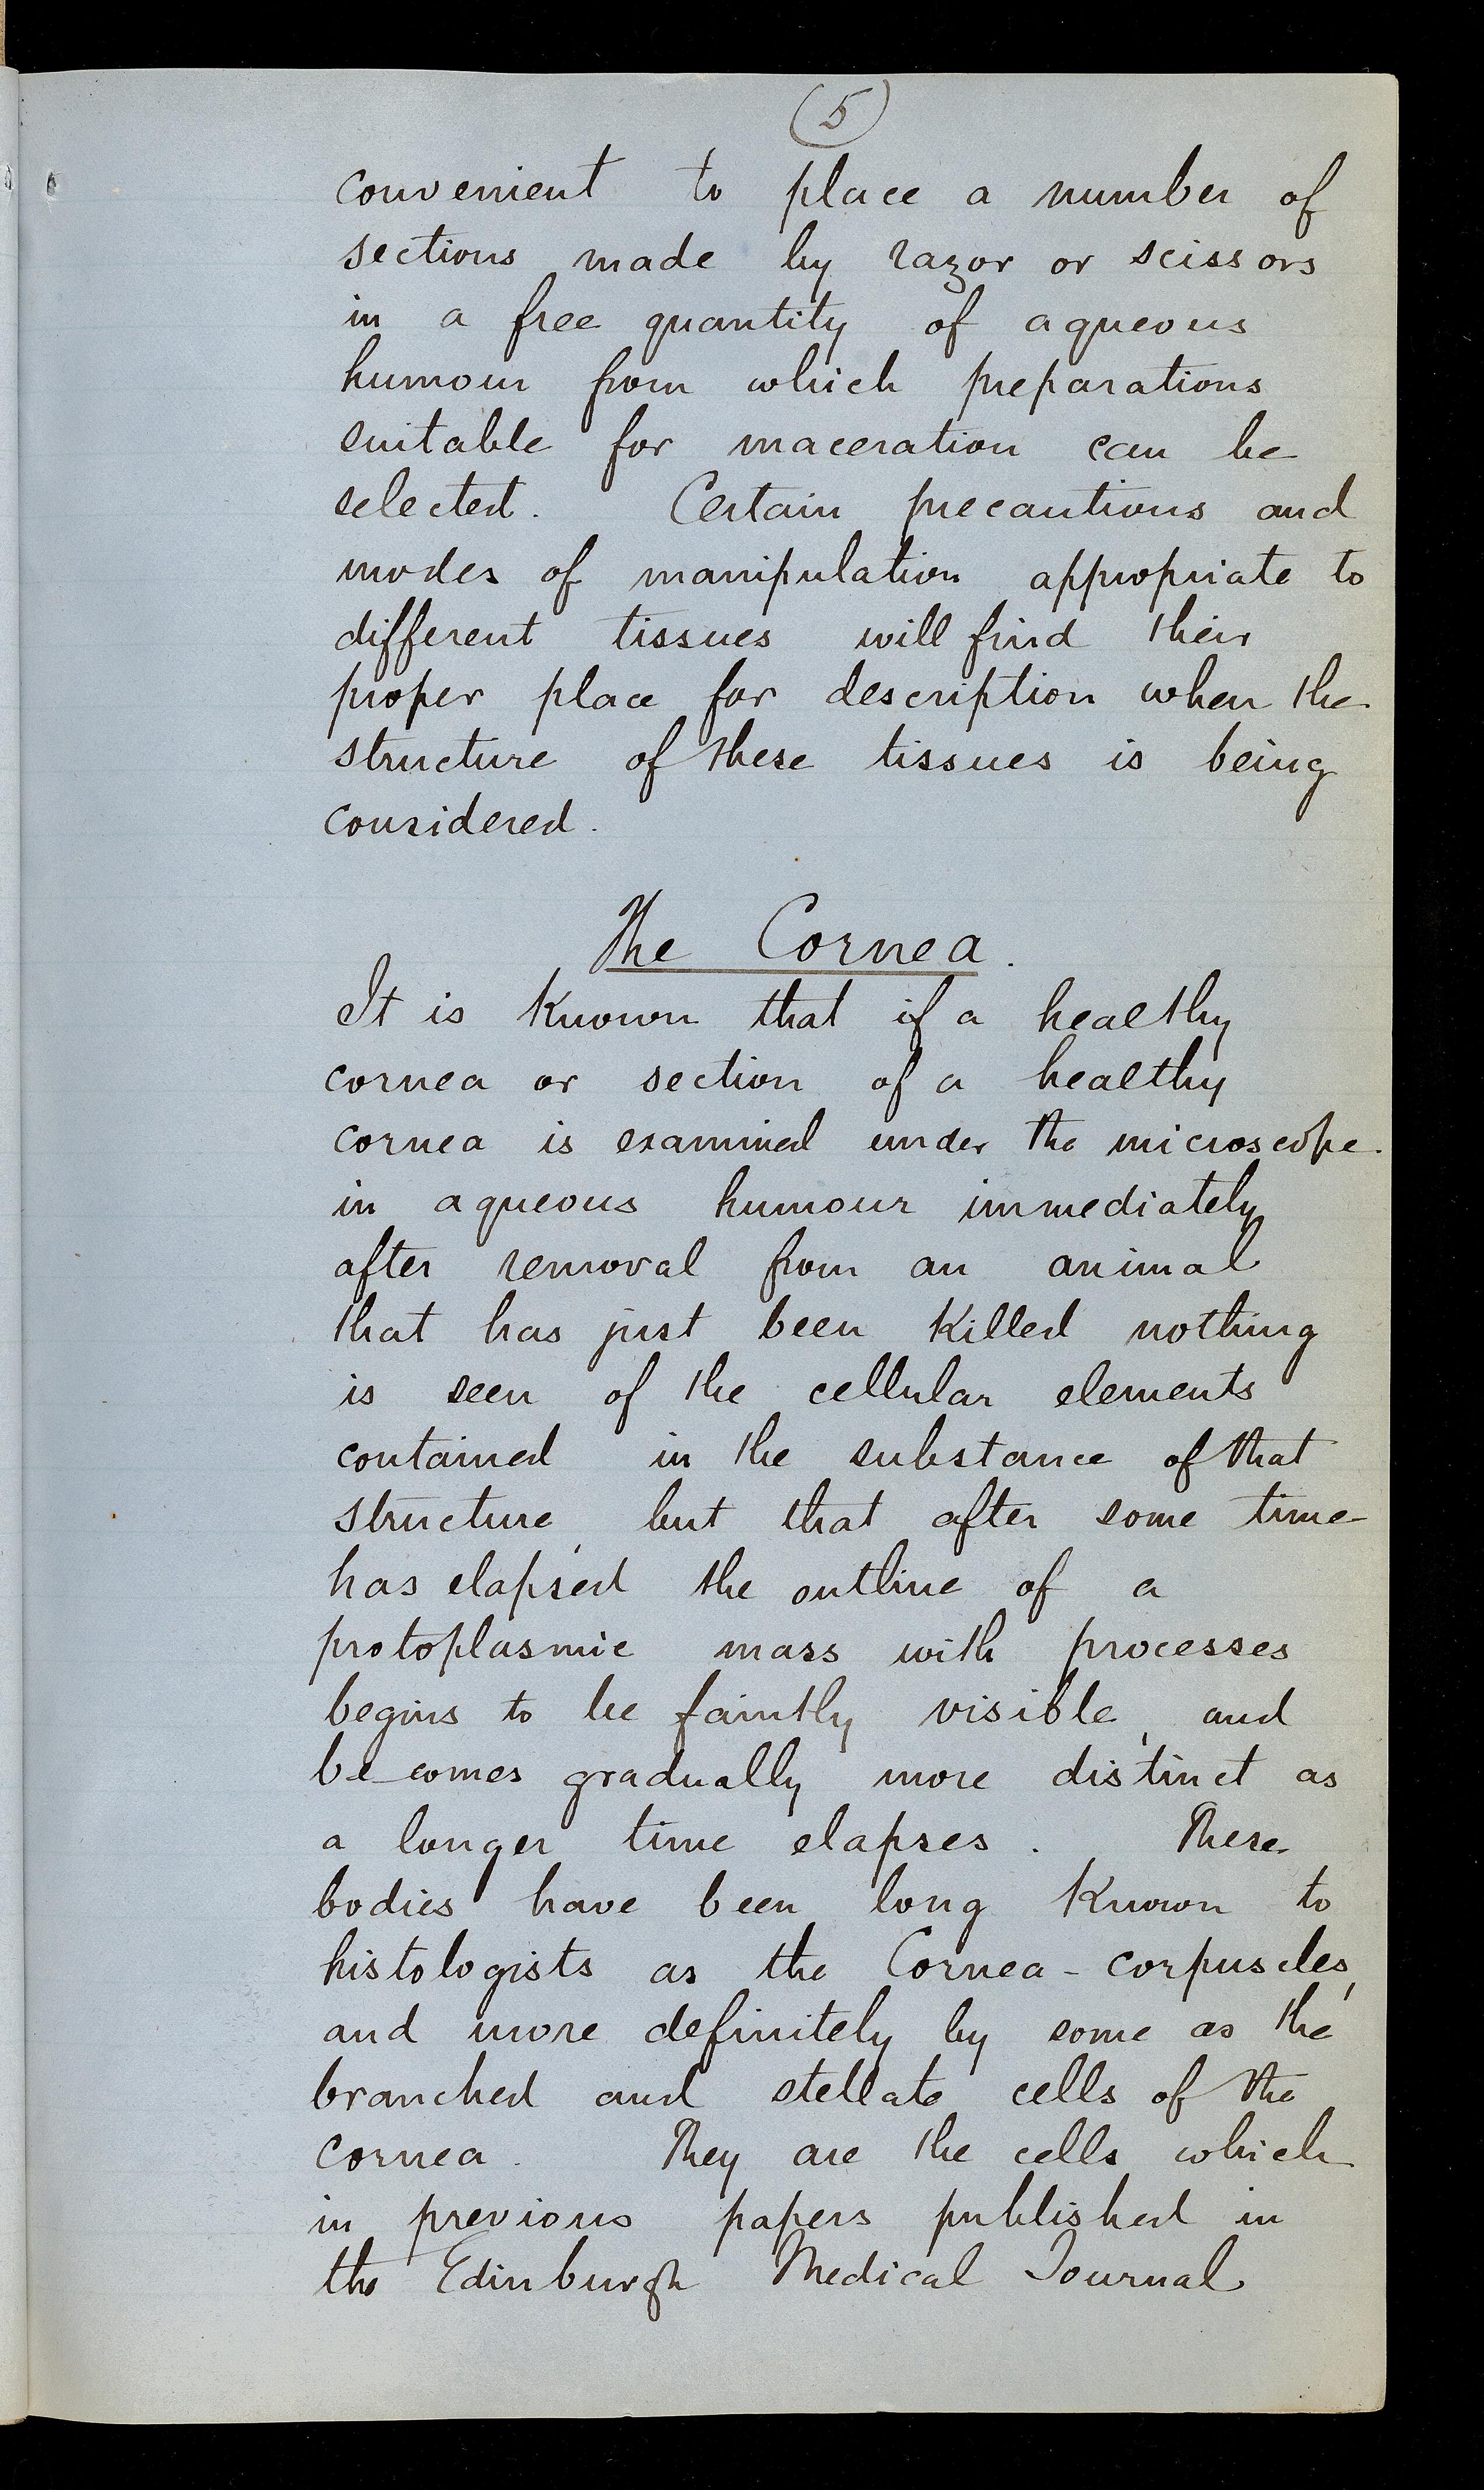 (5)
convenient to place a number of
sections made by razor or scissors
in a free quantity of aqueous
humour from which preparations
suitable for maceration can be
selected. Certain precautions and
modes of manipulation appropriate to
different tissues will find their
proper place for description when the
structure of these tissues is being
considered.
The Cornea.
It is known that if a healthy
cornea or section of a healthy
cornea is examined under the microscope
in aqueous humour immediately
after removal from an animal
that has just been killed nothing
is seen of the cellular elements
contained in the substance of that
structure, but that after some time
has elapsed the outline of a
protoplasmic mass with processes
begins to be faintly visible, and
becomes gradually more distinct as
a longer time elapses. These
bodies have been long known to
histologists as the Cornea-corpuscles,
and more definitely by some as the
branched and stellate cells of the
cornea. They are the cells which
in previous papers published in
the Edinburgh Medical Journal